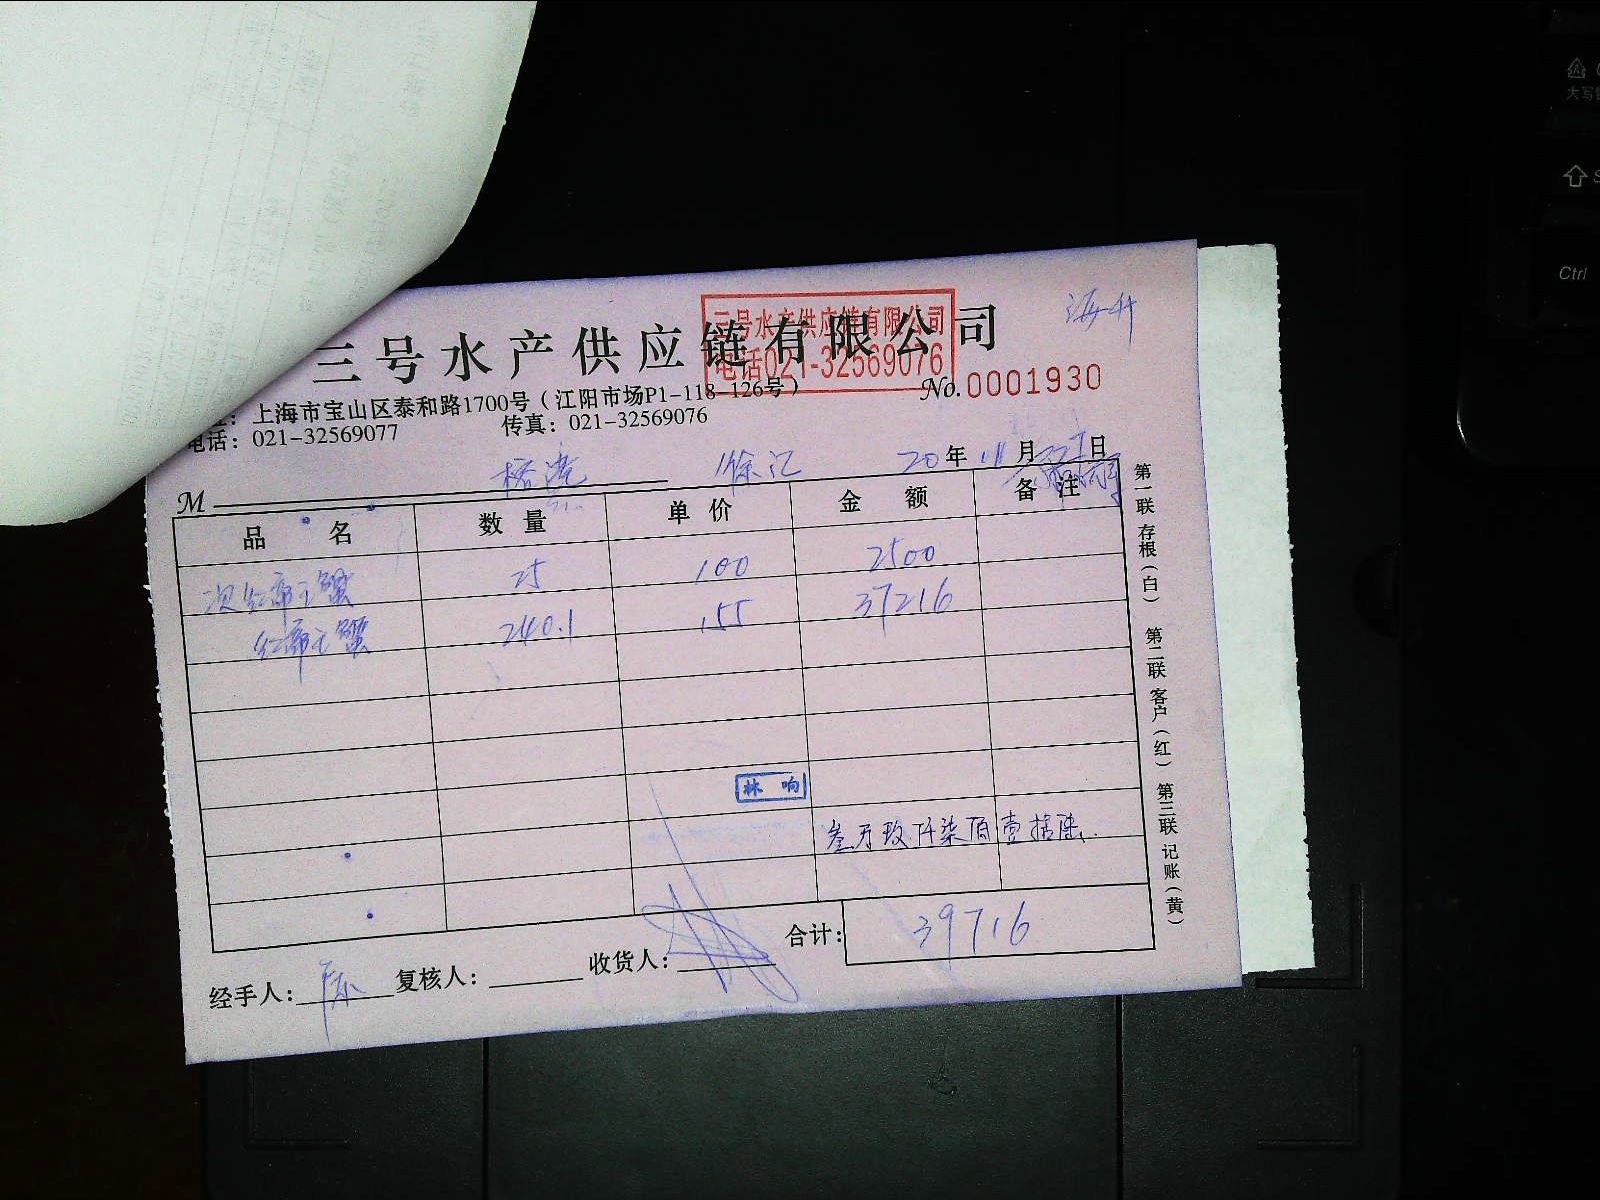 三号水产供应链有限公司
三号水产供应链有限公司
电话021-32569076
海升
No.0001930
：上海市宝山区泰和路1700号（江阳市场P1-118-126号）
电话：021-32569077 传真：021-32569076
M 徐汇 20年11月日
品名 数量 单价 金额 备注
次红帝王蟹 25 100 2500
红帝王蟹 240.1 155 37216
林响
叁万玖仟柒佰壹拾陆
合计：39716
经手人： 复核人： 收货人：
第一联 存根（白） 第二联 客户（红） 第三联 记账（黄）
大写
Ctrl